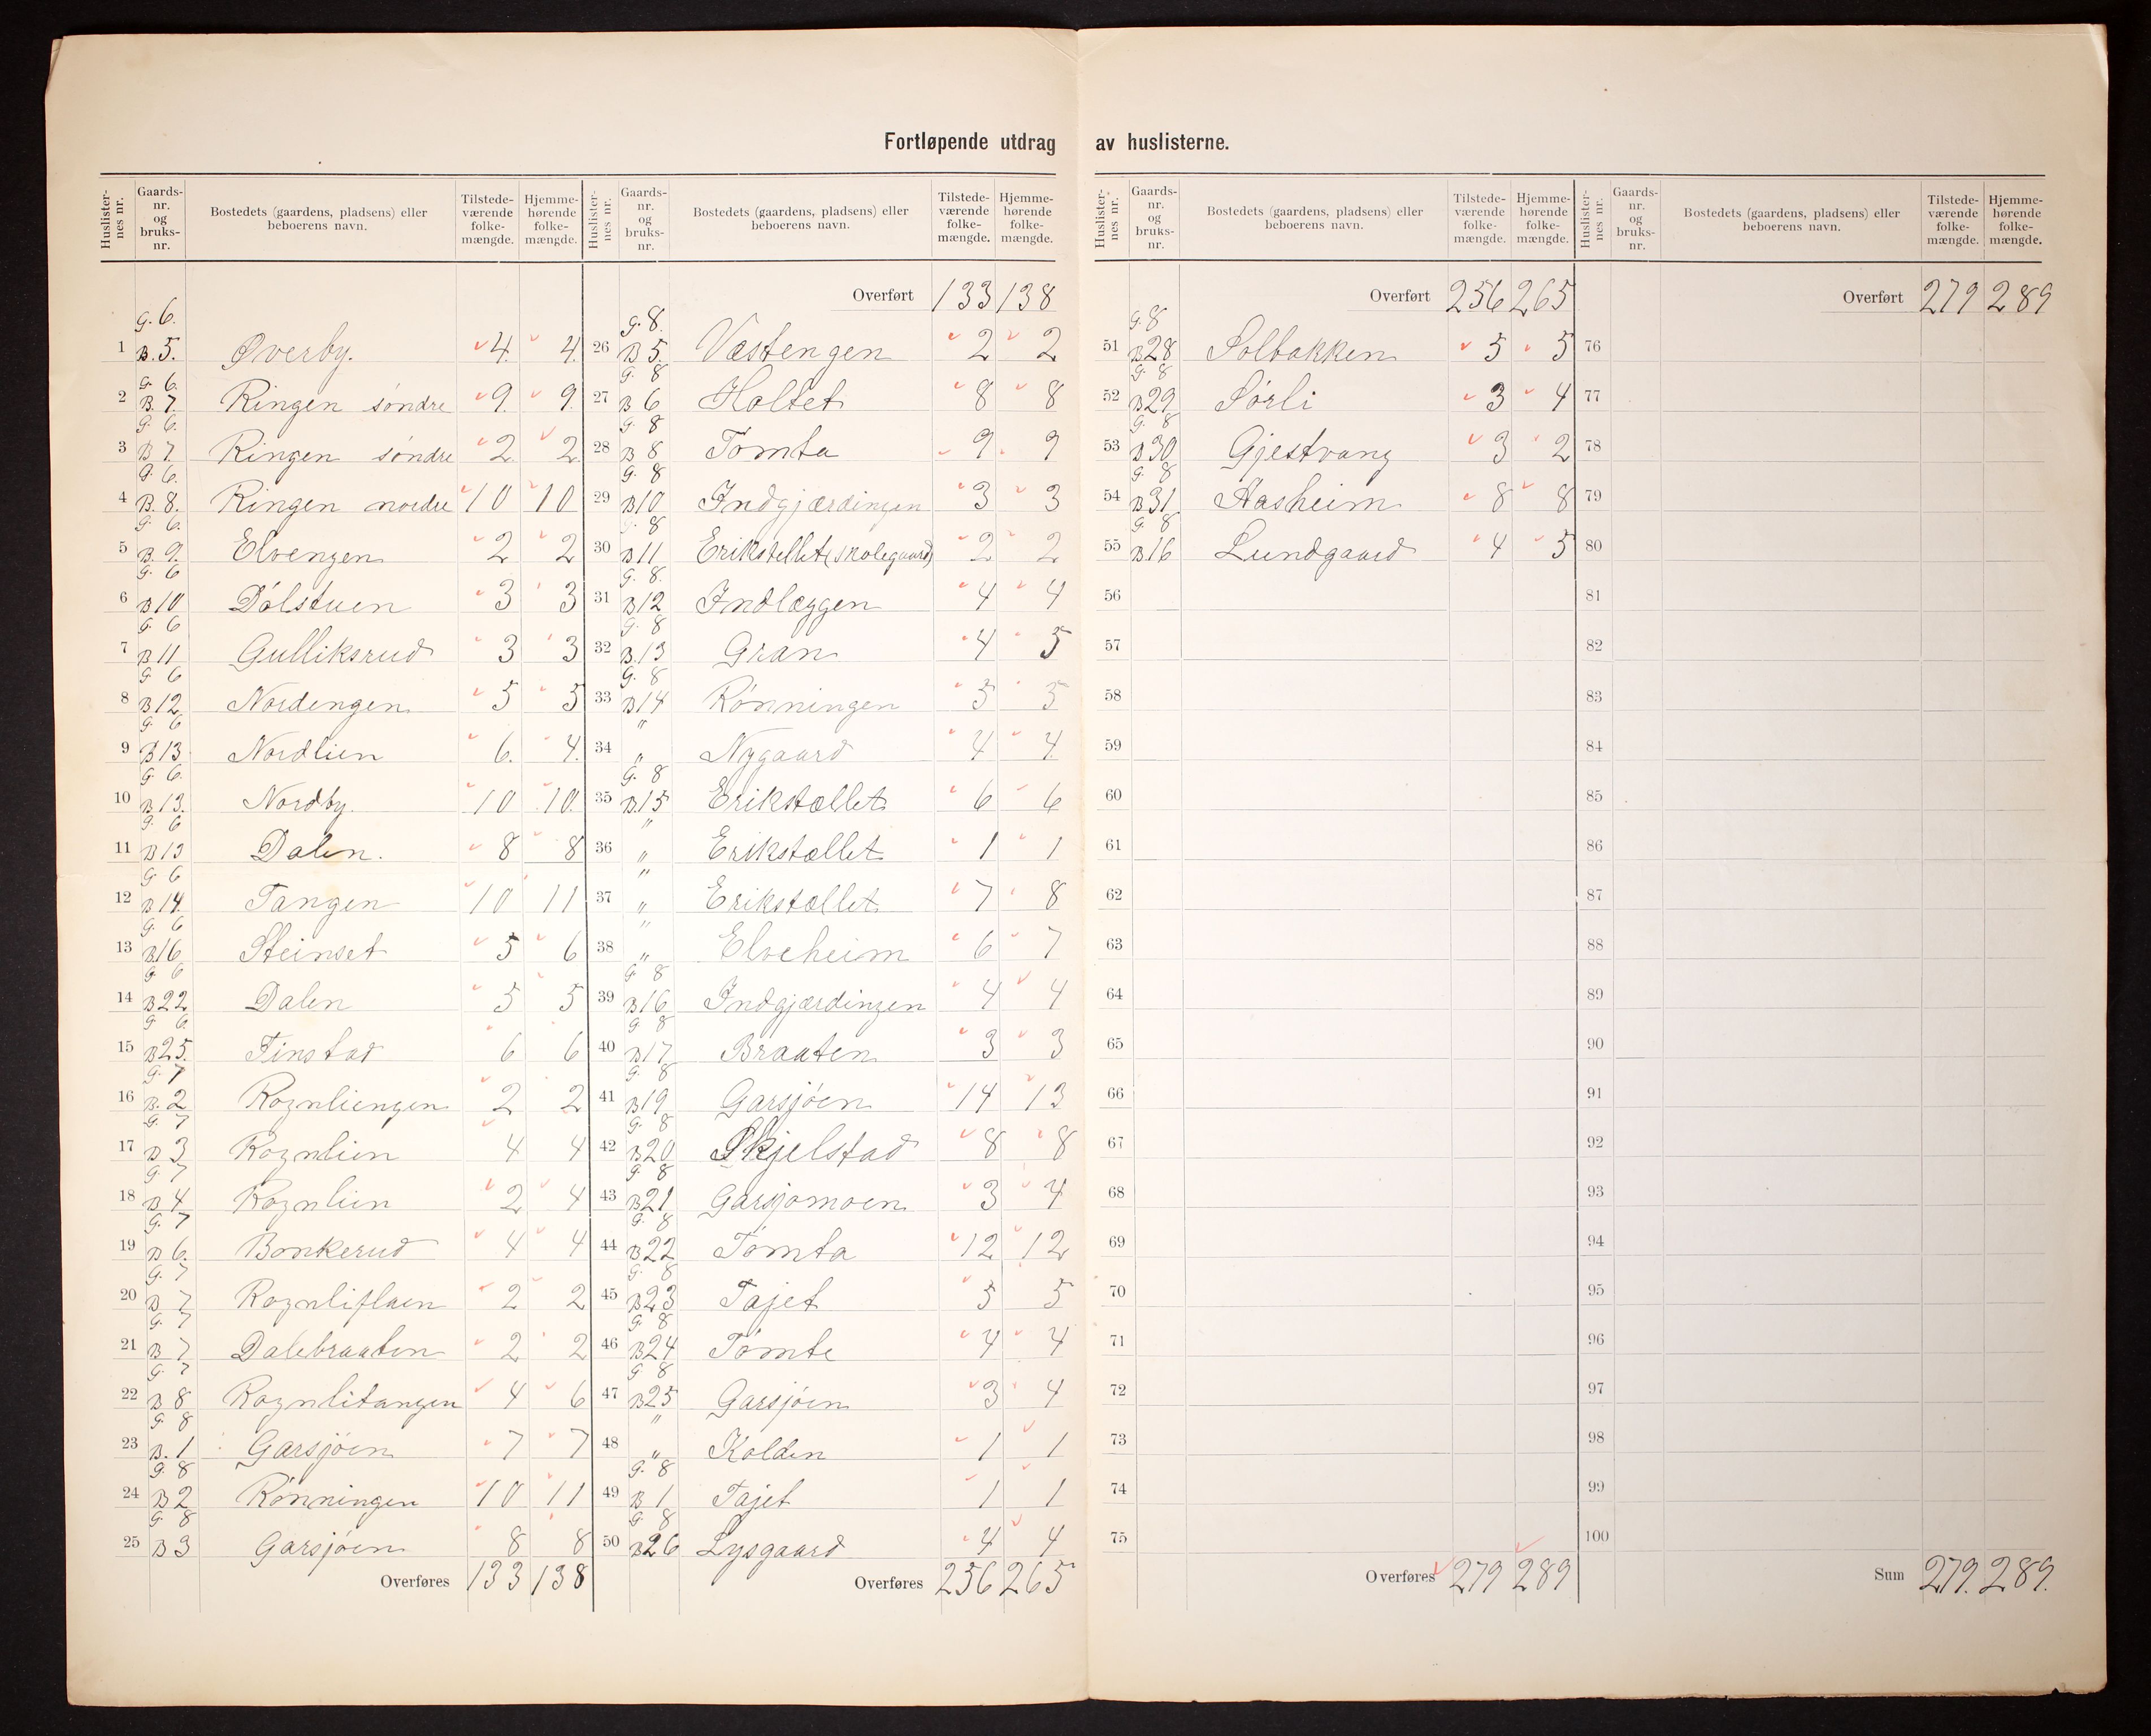 Fortløpende utdrag av huslisterne.
Huslisternes nr. Gaardsnr. og bruksnr. Bostedets (gaardens, pladsens) eller beboerens navn. Tilstedeværende folkemængde. Hjemmehørende folkemængde.
G. 6. 1 B. 5. Øverby. 4. 4.
G. 6. 2 B. 7. Ringen søndre 9. 9.
G. 6. 3 B 7. Ringen søndre 2. 2.
G. 6. 4 B. 8. Ringen nordre 10 10
G. 6. 5 B. 9. Elvengen 2 2
G. 6 6 B 10 Dølstuen 3 3
G. 6 7 B. 11 Gulliksrud 3 3
G 6 8 B 12 Nordengen 5 5
G 6 9 B 13 Nordlien 6. 4.
G. 6. 10 B 13. Nordby. 10 10.
G. 6 11 B 13 Dalen. 8 8
G 6 12 B 14. Tangen 10 11
G. 6 13 B16 Steinset 5 6
G 6 14 B22 Dalen 5 5
G 6. 15 B25. Finstad 6 6
G. 7 16 B. 2 Rognliengen 2 2
G. 7 17 B 3 Rognlien 4 4
G 7 18 B 4 Rognlien 2 4
G. 7 19 B 6. Bonkerud 4 4
G. 7 20 B 7 Rognliflaen 2 2
G. 7 21 B 7 Dalebraaten 2 2
G. 7 22 B 8 Rognlitangen 4 6
G 8 23 B. 1 Garsjøen 7 7
G. 8 24 B 2 Rønningen 10 11
G 8 25 B 3 Garsjøen 8 8
Overføres 133 138
Huslisternes nr. Gaardsnr. og bruksnr. Bostedets (gaardens, pladsens) eller beboerens navn. Tilstedeværende folkemængde. Hjemmehørende folkemængde.
Overført 133 138
G. 8. 26 B 5. Vestengen 2 2
G. 8 27 B 6 Holtet 8 8
G. 8 28 B 8 Tomta 9 9
G. 8 29 B10 Indgjærdingen 3 3
G. 8 30 B 11 Erikstellet (skolegaard) 2 2
G. 8. 31 B12 Indlæggen 4 4
G. 8 32 B. 13 Gran 4 5
G. 8 33 B14 Rønningen 5 5
" 34 " Nygaard 4 4.
G. 8 35 B.15 Erikstællet 6 6
" 36 " Erikstællet 1 1
" 37 " Erikstællet 7 8
" 38 " Elveheim 6 7
G 8 39 B16 Indgjærdingen 4 4
G 8 40 B17 Braaten 3 3
G. 8 41 B19 Garsjøen 14 13
G. 8 42 B20 Skjelstad 8 8
G. 8 43 B21 Garsjømoen 3 4
G. 8 44 B22 Tomta 12 12
G. 8 45 B23 Tajet 5 5
G. 8 46 B24 Tomte 4 4
G 8 47 B25 Garsjøen 3 4
" 48 " Kolden 1 1
G. 8 49 B 1 Tajet 1 1
G. 8 50 B26 Lysgaard 4 4
Overføres 256 265
Huslisternes nr. Gaardsnr. og bruksnr. Bostedets (gaardens, pladsens) eller beboerens navn. Tilstedeværende folkemængde. Hjemmehørende folkemængde.
Overført 256 265
G. 8 51 B28 Solbakken 5 5
G. 8 52 B29 Sørli 3 4
G. 8 53 B30 Gjestvang 3 2
G. 8 54 B31 Aasheim 8 8
G 8 55 B.16 Lundgaard 4 5
56
57
58
59
60
61
62
63
64
65
66
67
68
69
70
71
72
73
74
75
Overføres 279 289
Huslisternes nr. Gaardsnr. og bruksnr. Bostedets (gaardens, pladsens) eller beboerens navn. Tilstedeværende folkemængde. Hjemmehørende folkemængde.
Overført 279 289
76
77
78
79
80
81
82
83
84
85
86
87
88
89
90
91
92
93
94
95
96
97
98
99
100
Sum 279. 289.